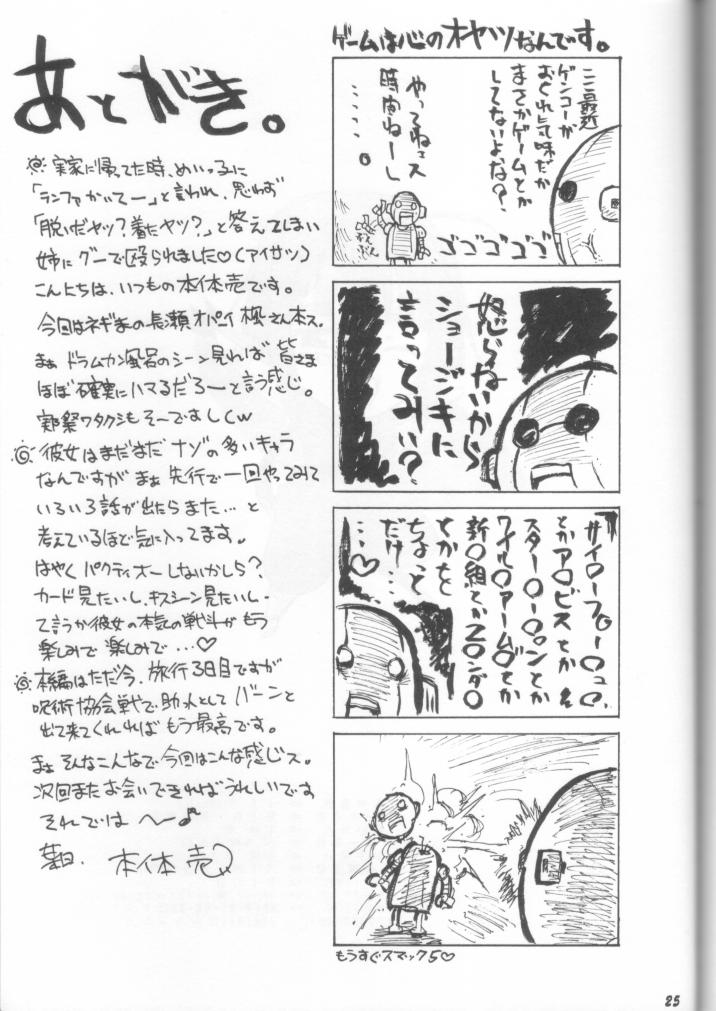 あとがき。
実家に帰ってた時、めいっ子に
「ランファかいてー」と言われ、思わず
「脱いだヤツ?着たヤツ?」と答えてしまい
姉にグーで殴られました♡(アイサツ)
こんにちは、いつもの本体売です。
今回はネギまの長瀬オパイ楓さん本ス。
まぁドラムカン風呂のシーン見れば皆さま
ほぼ確実にハマるだろーと言う感じ。
実際ワタクシもそーですしw
彼女はまだまだナゾの多いキャラ
なんですがまぁ先行で一回やってみて
いろいろ話が出たらまた…と
考えているほど気に入ってます。
はやくパクティオーしないかしら?
カード見たいし、キスシーン見たいし・
て言うか彼女の本気の戦斗がもう
楽しみで楽しみで…♡
本編はただ今、旅行3日目ですが
呪術協会戦で助っ人としてバーンと
出て来てくれればもう最高です。
まぁそんなこんなで今回はこんな感じス。
次回またお会いできればうれしいです
それでは〜♪
本体売
ゲームは心のオヤツなんです。
ここ最近
ゲンコーが
おくれ気味だが
まさかゲームとか
してないよな?
やってねェス
時間ねーし
……。
ゴゴゴゴゴ
怒らないから
ショージキに
言ってみい?
サイ○ーフォ○ーO
とかア○ビスとか
スター○ー○ンとか
ワイル○アーム○とか
新○組とかZ○ンダ○
とかをと
ちょっと
だけ…
…♡
もうすぐスマック5♡
25